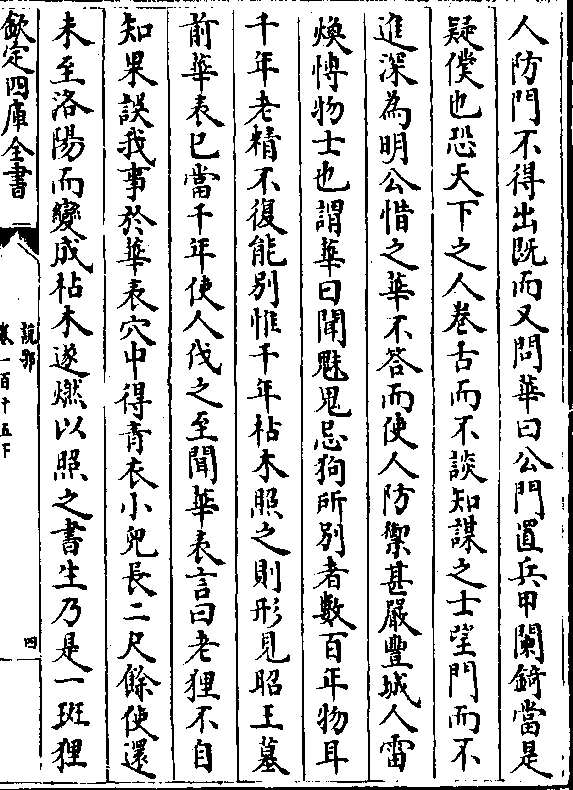 人防門不得出既而又問華曰公門置兵甲闌錡當是
疑僕也恐天下之人卷舌而不談知謀之士望門而不
進深為明公惜之華不答而使人防禦甚嚴豐城人雷
煥博物士也謂華曰聞魅鬼忌狗所别者數百年物耳
千年老精不復能别惟千年枯木照之則形見昭王墓
前華表已當千年使人伐之至聞華表言曰老狸不自
知果誤我事於華表穴中得青衣小兒長二尺餘使還
未至洛陽而變成枯木遂燃以照之書生乃是一斑狸
欽定四庫全書
說郛
卷一百十五下
四